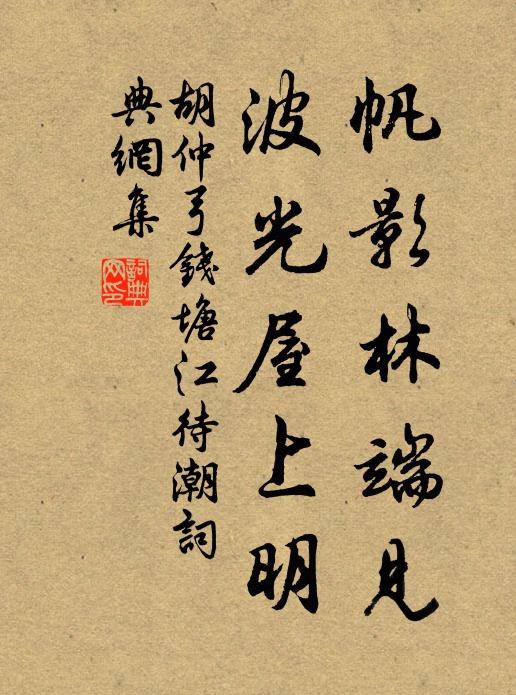 帆影林端見
波光屋上明
胡仲弓錢塘江待潮詞
典網集
詞典網印